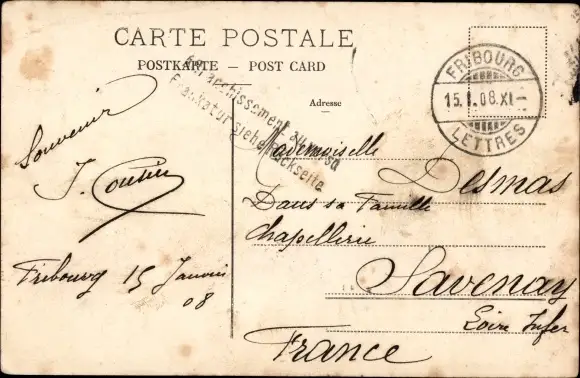 CARTE POSTALE
POSTKARTE — POST CARD
Affranchissement au verso
Frankatur siehe Rückseite
Adresse
FRIBOURG
15.I.08.XI-
LETTRES
Souvenir
J. Cousin
Fribourg 15 Janvier
08
Mademoiselle
Desmas
Dans sa Famille
Chapellerie
Savenay
Loire Infer
France